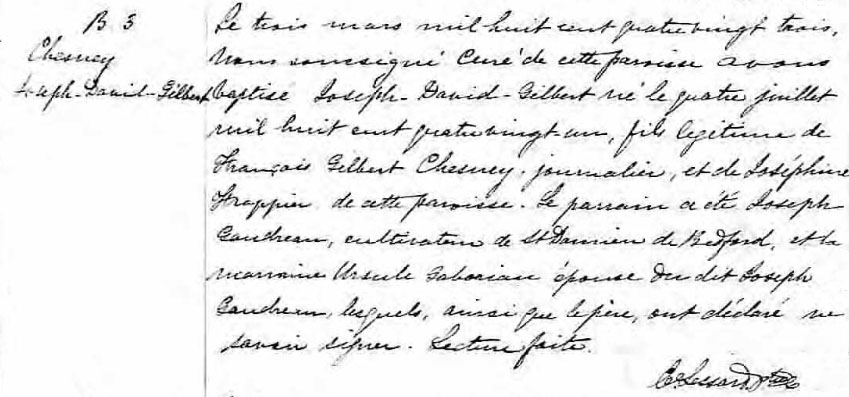 B 3
Chesney
Joseph-David-Gilbert
Le trois mars mil huit cent quatre vingt trois,
Nous soussigné Curé de cette paroisse avons
baptisé Joseph-David-Gilbert né le quatre juillet
mil huit cent quatre vingt un, fils légitime de
François Gilbert Chesney, journalier, et de Joséphine
Frappier de cette paroisse. Le parrain a été Joseph
Gaudreau, cultivateur de St Damien de Bedford, et la
marraine Ursule Gaboriau épouse du dit Joseph
Gaudreau, lesquels, ainsi que le père, ont déclaré ne
savoir signer. Lecture faite.
Lessard Ptre